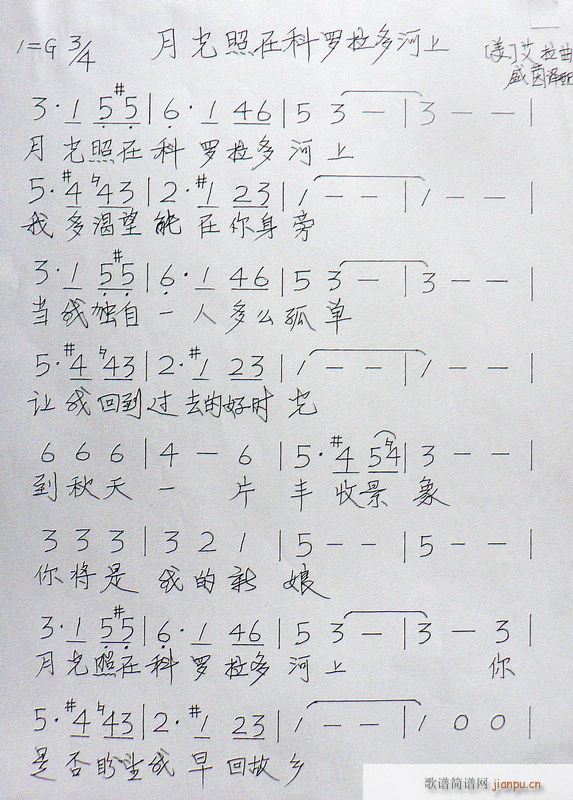 1=G 3/4 月光照在科罗拉多河上 [美]艾拉曲
盛茵译配
3· 1 5 #5 | 6· 1 46 | 5 3 — | 3 — — |
月光照在科罗拉多河上
5· #4 ♮43 | 2· #1 23 | 1 — — | 1 — — |
我多渴望能在你身旁
3· 1 5 #5 | 6· 1 46 | 5 3 — | 3 — — |
当我独自一人多么孤单
5· #4 ♮43 | 2· #1 23 | 1 — — | 1 — — |
让我回到过去的好时光
6 6 6 | 4 — 6 | 5· #4 5♮4 | 3 — — |
到秋天一片丰收景象
3 3 3 | 3 2 1 | 5 — — | 5 — — |
你将是我的新娘
3· 1 5 #5 | 6· 1 46 | 5 3 — | 3 — 3 |
月光照在科罗拉多河上 你
5· #4 ♮43 | 2· #1 23 | 1 — — | 1 0 0 |
是否盼望我早回故乡
歌谱简谱网 jianpu.cn